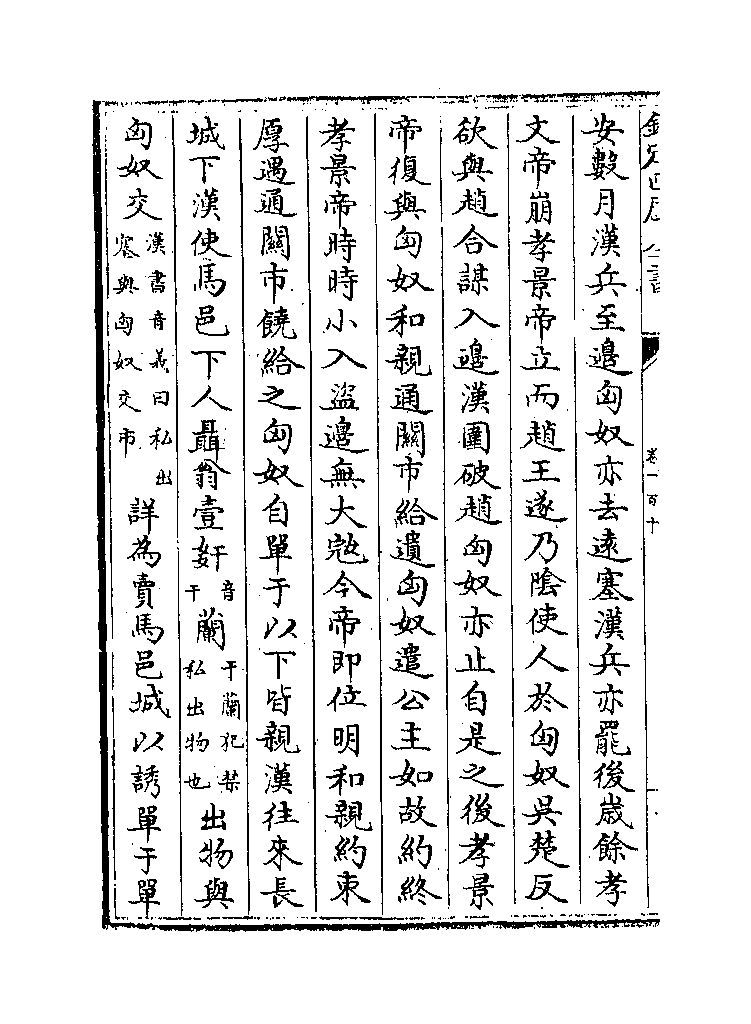 欽定四庫全書
卷一百十
安數月漢兵至邊匈奴亦去遠塞漢兵亦罷後歲餘孝
文帝崩孝景帝立而趙王遂乃陰使人於匈奴吳楚反
欲與趙合謀入邊漢圍破趙匈奴亦止自是之後孝景
帝復與匈奴和親通關市給遺匈奴遣公主如故約終
孝景帝時時小入盜邊無大冦今帝即位明和親約束
厚遇通關市饒給之匈奴自單于以下皆親漢往來長
城下漢使馬邑下人聶翁壹奸音干蘭干蘭犯禁私出物也出物與
匈奴交漢書音義曰私出塞與匈奴交市詳為賣馬邑城以誘單于單